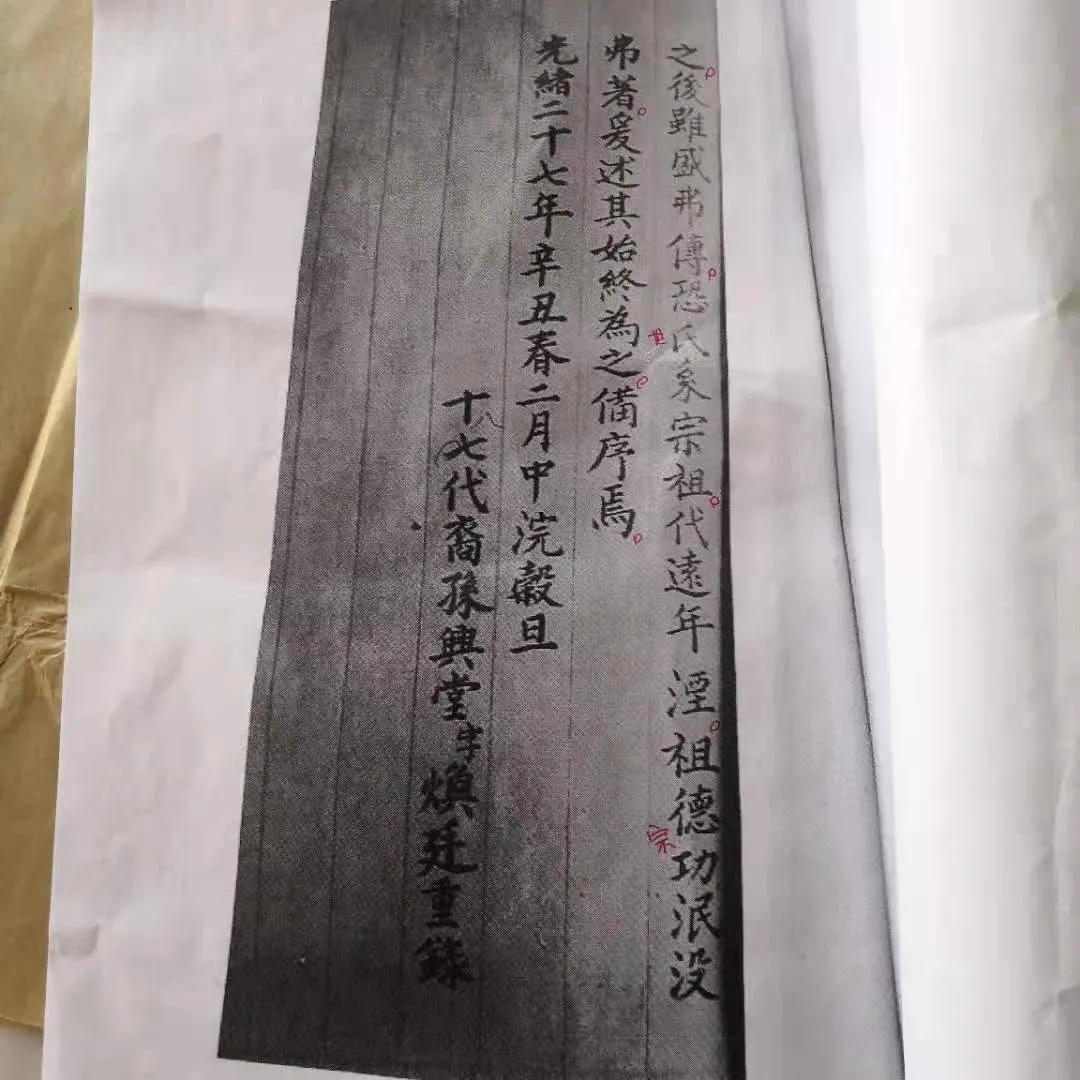 之後雖盛弗傳恐世氏系宗祖代遠年湮祖宗德功泯没
弗著爰述其始終為之備序焉
光緒二十七年辛丑春二月中浣穀旦
十八七代裔孫興堂字煥廷重錄